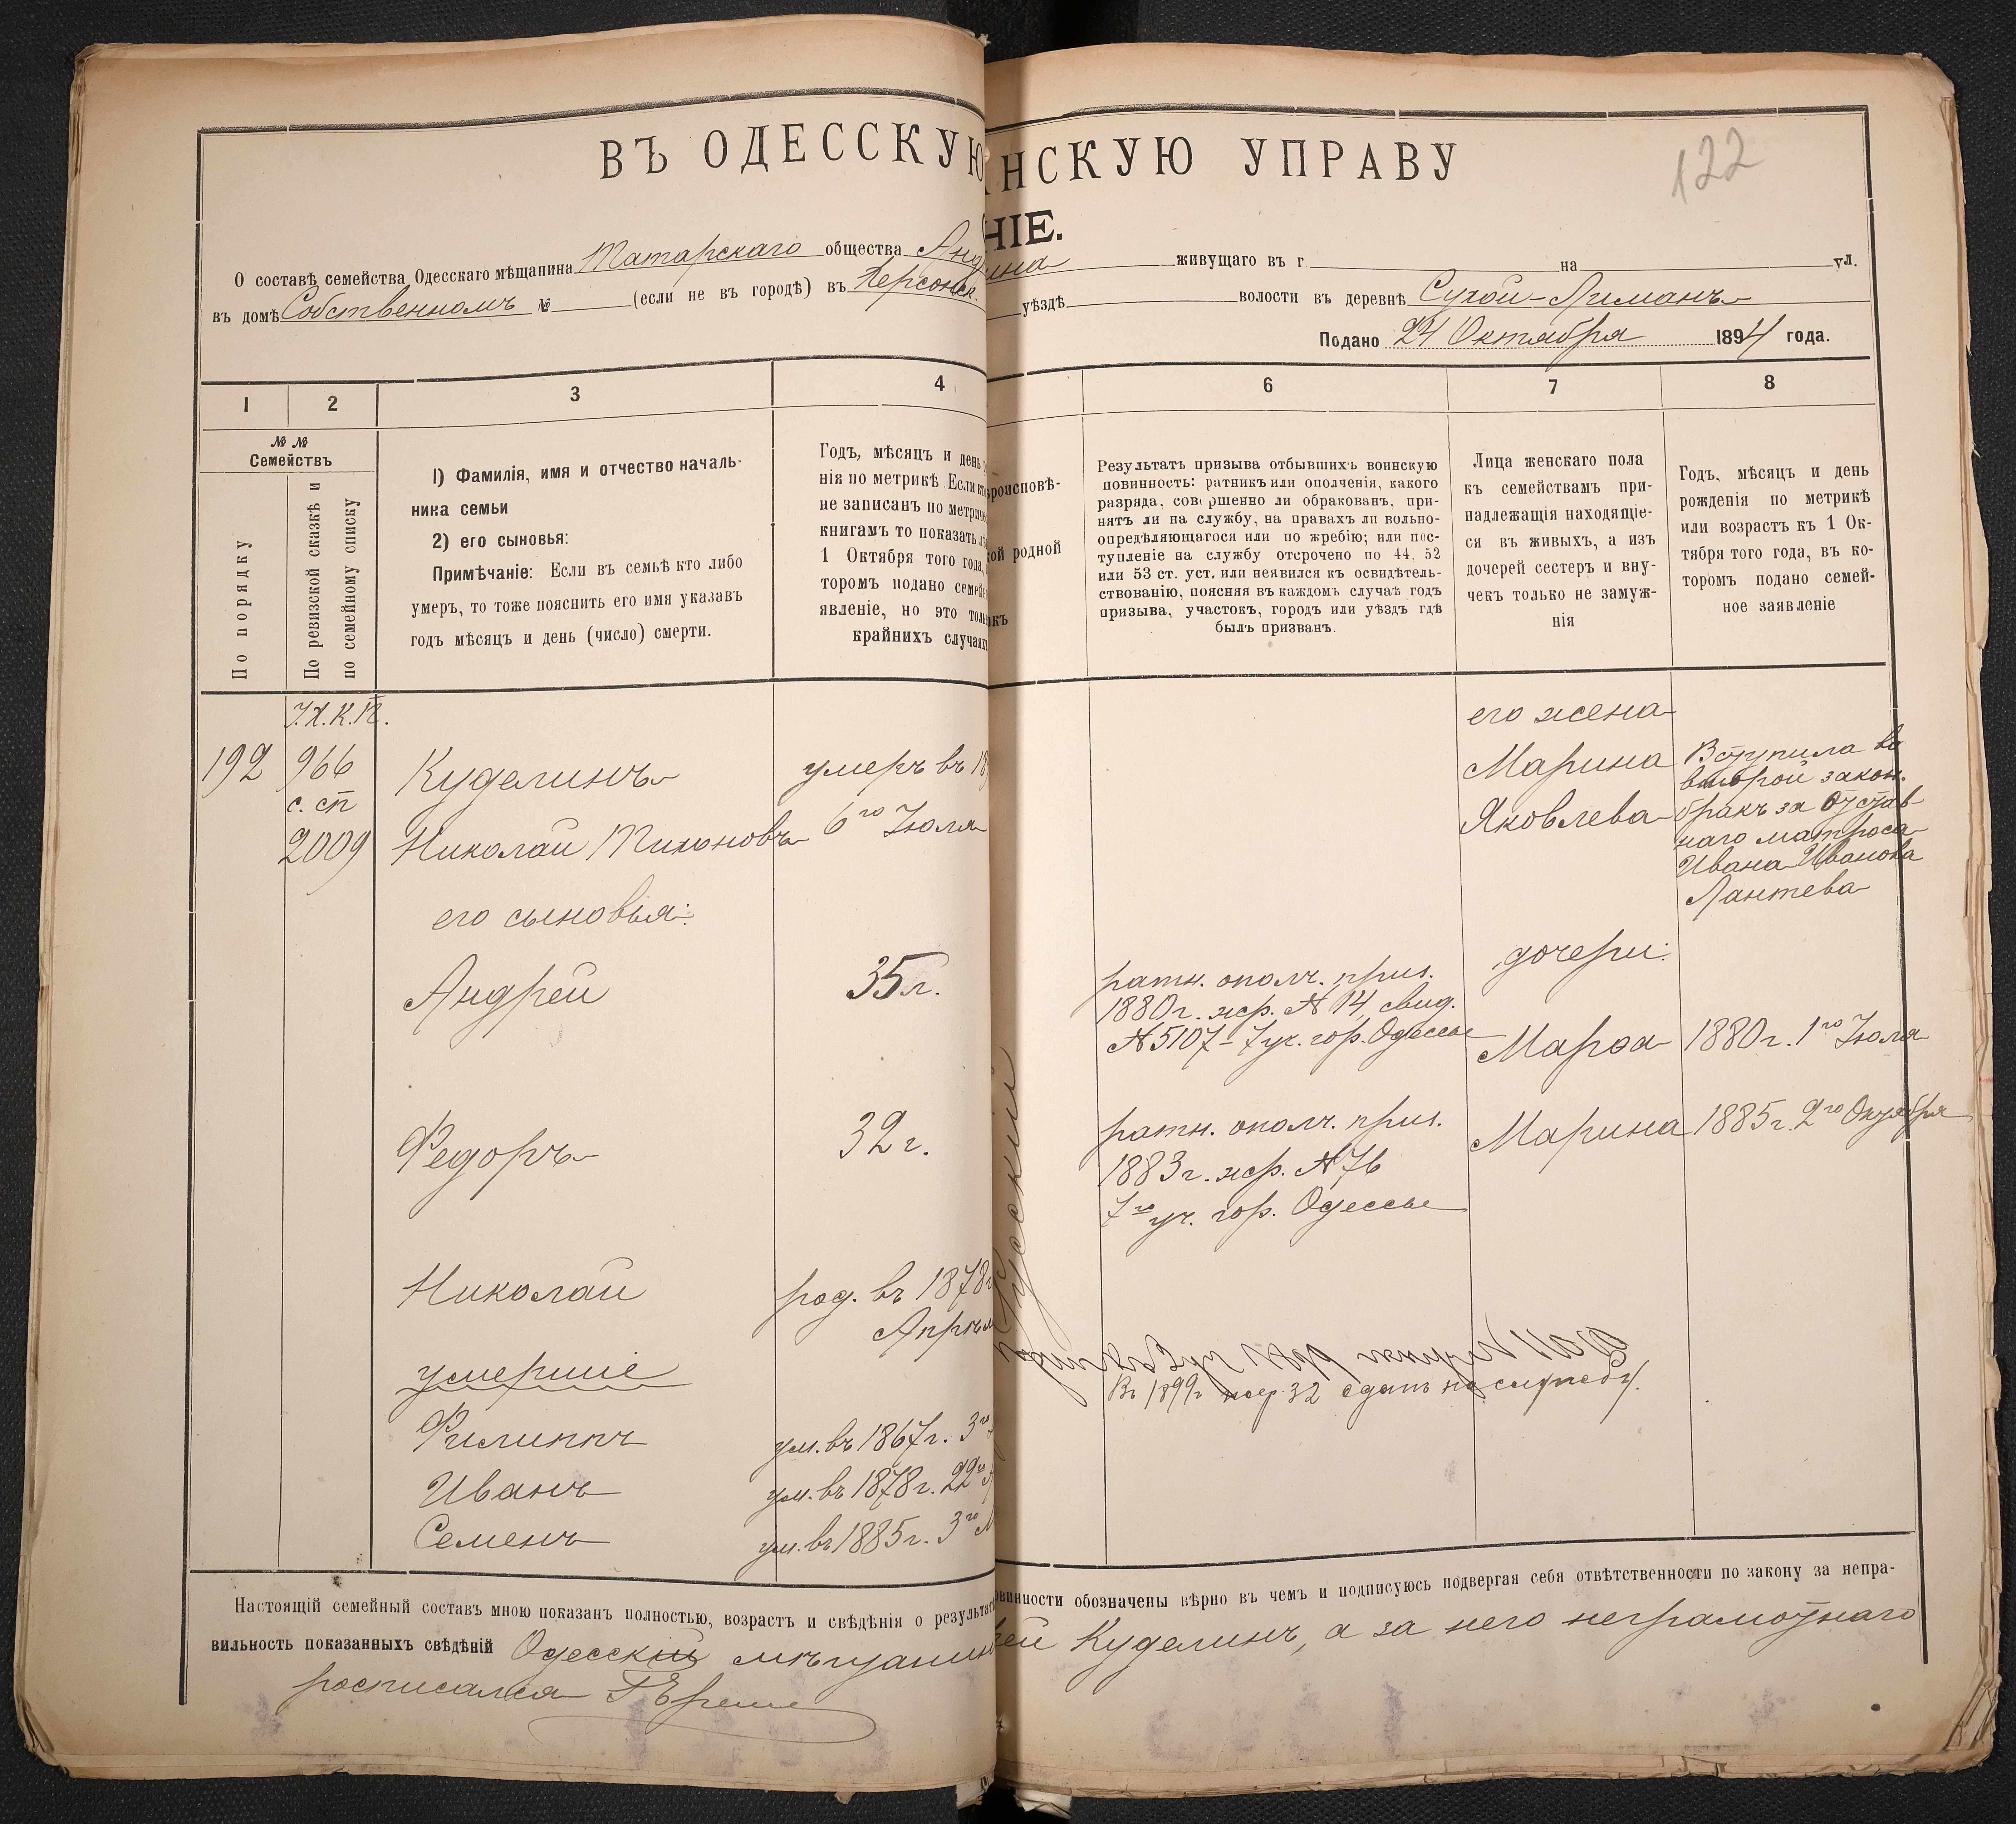 122
ВЪ ОДЕССКУЮ
НСКУЮ УПРАВУ
НІЕ.
О составѣ семейства Одесскаго мѣщанина Татарскаго общества Анд
ина живущаго въ г на ул.
въ домѣ Собственномъ № (если не въ городѣ) въ Херсонск.
уѣздѣ волости въ деревнѣ Сухой-Лиманъ
Подано 24 Октября 1894 года.
1 2 3 4
6 7 8
№ №
Семействъ
По порядку
По ревизской сказкѣ и
по семейному списку
1) Фамилія, имя и отчество началь-
ника семьи
2) его сыновья:
Примѣчаніе: Если въ семьѣ кто либо
умеръ, то тоже пояснить его имя указавъ
годъ мѣсяцъ и день (число) смерти.
Годъ, мѣсяцъ и день
нія по метрикѣ Если
не записанъ по метрич
книгамъ то показать
1 Октября того года,
торомъ подано семей
явленіе, но это толь
крайнихъ случаях
роисповѣ-
ой родной
къ
Результатъ призыва отбывшихъ воинскую
повинность: ратникъ или ополченія, какого
разряда, совершенно ли обракованъ, при-
нятъ ли на службу, на правахъ ли вольно-
опредѣляющагося или по жребію; или пос-
тупленіе на службу отсрочено по 44, 52
или 53 ст. уст. или неявился къ освидѣтель-
ствованію, поясняя въ каждомъ случаѣ годъ
призыва, участокъ, городъ или уѣздъ гдѣ
былъ призванъ.
Лица женскаго пола
къ семействамъ при-
надлежащія находящіе-
ся въ живыхъ, а изъ
дочерей сестеръ и вну-
чекъ только не замуж-
нія
Годъ, мѣсяцъ и день
рожденія по метрикѣ
или возрастъ къ 1 Ок-
тября того года, въ ко-
торомъ подано семей-
ное заявленіе
192 966
с. сп
2009
Куделинъ
Николай Тихоновъ
умеръ въ 18
6го Іюля
его жена
Марина
Яковлева
Вступила во
второй закон.
бракъ за Отстав-
наго матроса
Ивана Иванова
Лаптева
его сыновья:
дочери:
Андрей 35 л.
ратн. ополч. приз.
1880 г. жр. № 14, свид.
№ 5107 - 7 уч. гор. Одессы
Марѳа 1880 г. 1го Іюля
Федоръ 32 г.
ратн. ополч. приз.
1883 г. жр. № 76
7го уч. гор. Одессы
Марина 1885 г. 2го Октября
Николай род. въ 1878 г
Апрѣл
Въ 1899 г жер 32 сданъ на службу.
умершіе
Филиппъ ум. въ 1867 г. 3го
Иванъ ум. въ 1878 г. 22го
Семенъ ум. въ 1885 г. 3го М
Русскій
Настоящій семейный составъ мною показанъ полностью, возрастъ и свѣдѣнія о результат
овинности обозначены вѣрно въ чемъ и подписуюсь подвергая себя отвѣтственности по закону за непра-
вильность показанныхъ свѣдѣній Одесскій мѣщанин
рей Куделинъ, а за него неграмотнаго
росписался